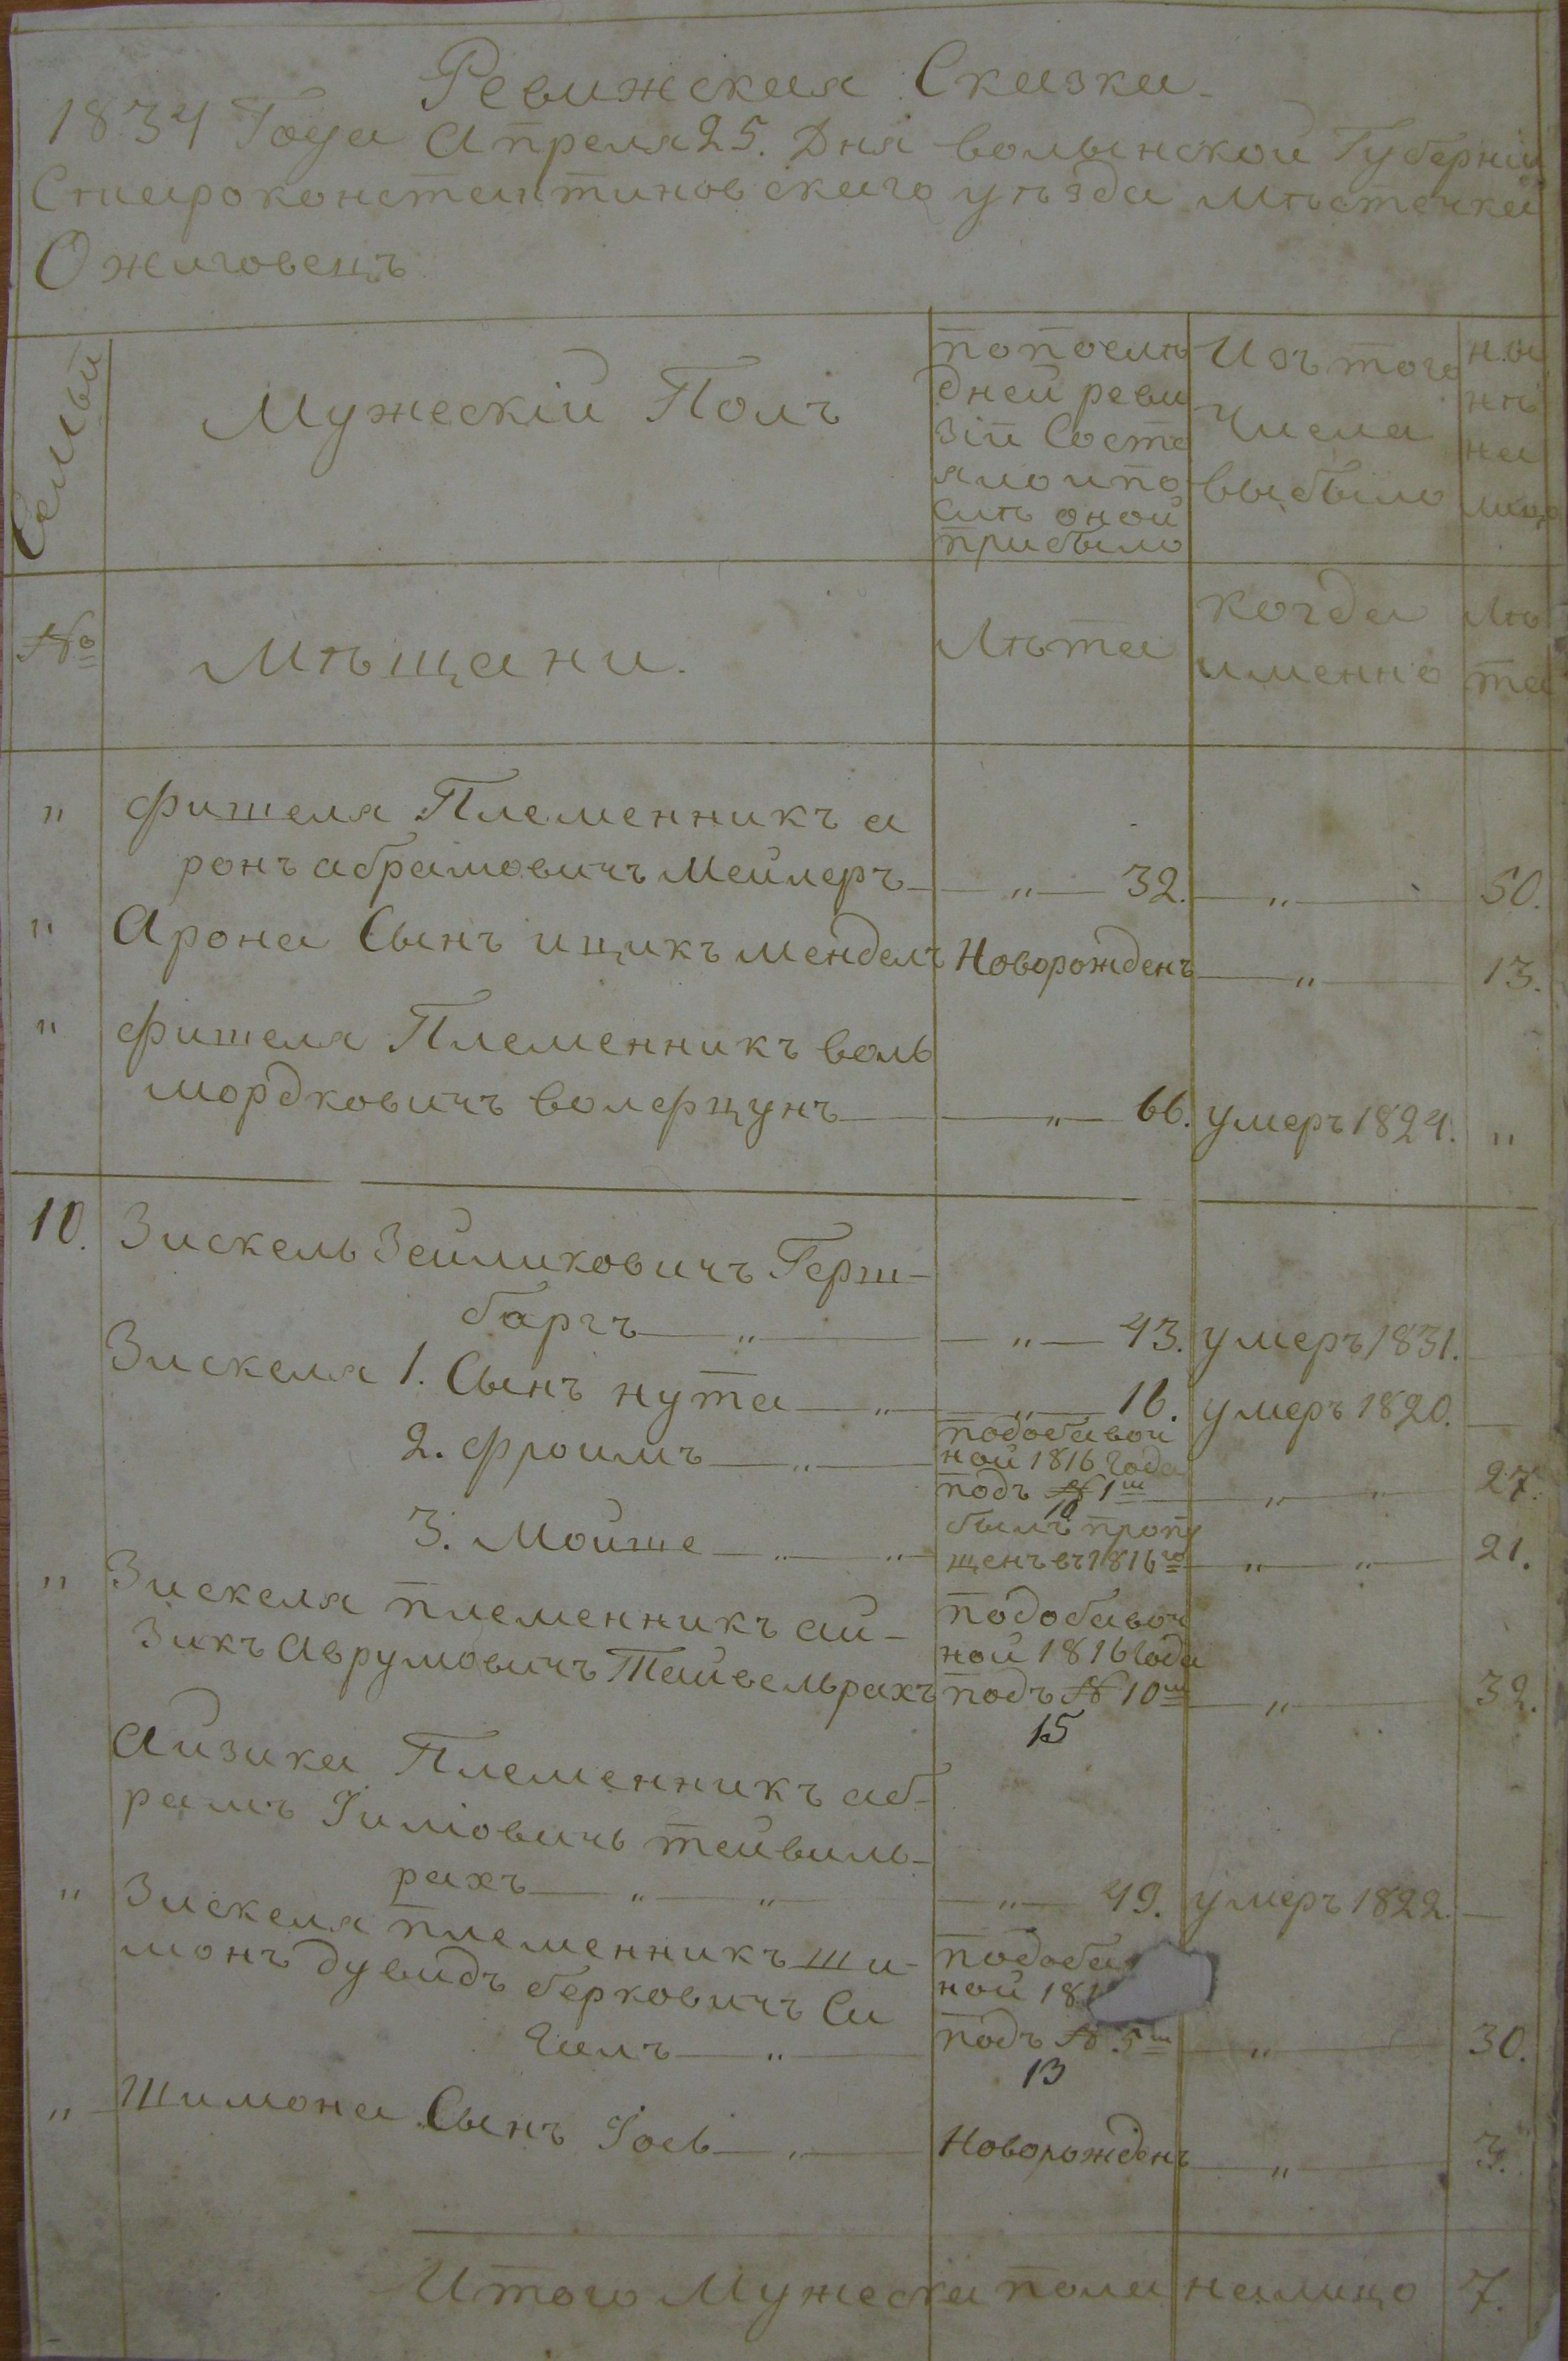 Ревижская Сказка
1834 Года Апреля 25. Дня волынской Губерніи
Староконстантиновскаго уѣзда мѣстечка
Ожиговецъ
Семьи
Мужескій Полъ
попослѣ
дней реви
зіи Состо
яло ипо
слѣ оной
прибыло
Изъ того
Числа
выбыло
ны
нѣ
на
лицо
№
Мѣщани.
Лѣта
когда
именно
Лѣ
та
" фишеля Племенникъ а
ронъ абрамовичъ мейлеръ — " — 32. — " — 50.
" Арона Сынъ ицикъ мендель Новорожденъ — " — 13.
" фишеля Племенникъ воль
мордковичъ волефцунъ — " — 66. умеръ 1824. "
10. Зискель Зейликовичъ Герш-
баргъ — " — " — 43. умеръ 1831. —
Зискеля 1. Сынъ нута — " — " — 16. умеръ 1820. —
2. фроимъ — " — подобавоч
ной 1816 Года
подъ № 1ш — " — " — 27.
10
3. Мойше — " — " былъ проп
щенъ въ 1816го — " — " — 21.
" Зискеля племенникъ ай-
зикъ Аврумовичъ Тайвельрахъ
подобавоч
ной 1816 Года
подъ № 10ш — " — 32.
15
Айзика Племенникъ аб-
рамъ Іиліовичь тейвиль-
рахъ — " — " — " — 49. умеръ 1822. —
" Зискеля племенникъ ши-
монъ дувидъ берковичъ Си
гилъ — " —
подоба
ной 181
подъ № 5ш — " — 30.
13
" Шимона Сынъ Іось — " — Новорожденъ — " — 3.
Итого Мужеска пола налицо 7.